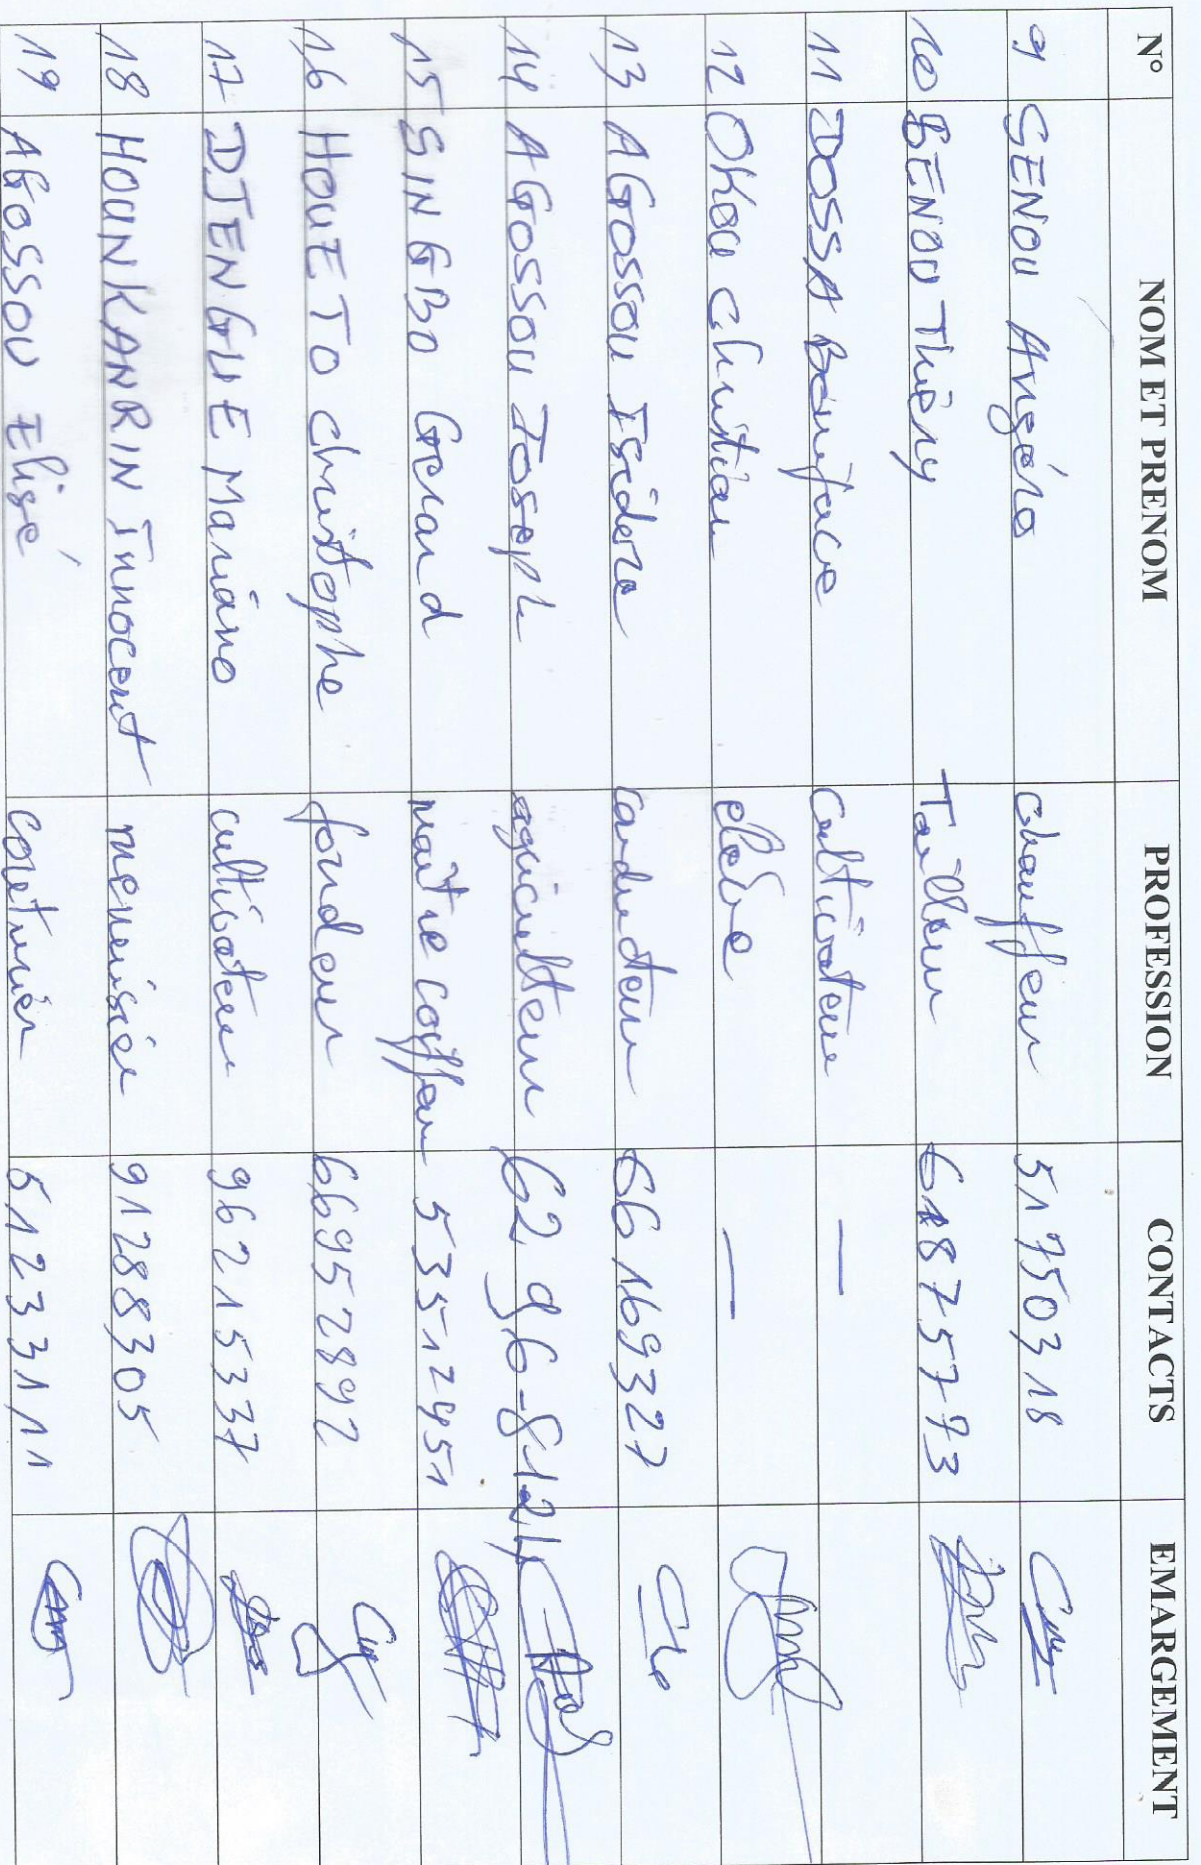 N° NOM ET PRENOM PROFESSION CONTACTS EMARGEMENT
9 SENOU Angélo chauffeur 51750318
10 SENOU Thiéry Tailleur 61875773
11 DOSSA Boniface Cultivateur —
12 OKOU Christian eleve —
13 AGOSSOU Isidore conducteur 66169327
14 AGOSSOU Joseph agriculteur 62.96-8124
15 SINGBO Gerard maitre coiffeur 53512451
16 HOUETO christophe fondeur 66952892
17 DJENGUE Mariano cultivateur 96215337
18 HOUNKANRIN Innocent menuisier 91288305
19 AGOSSOU Elisé couturier 51233111